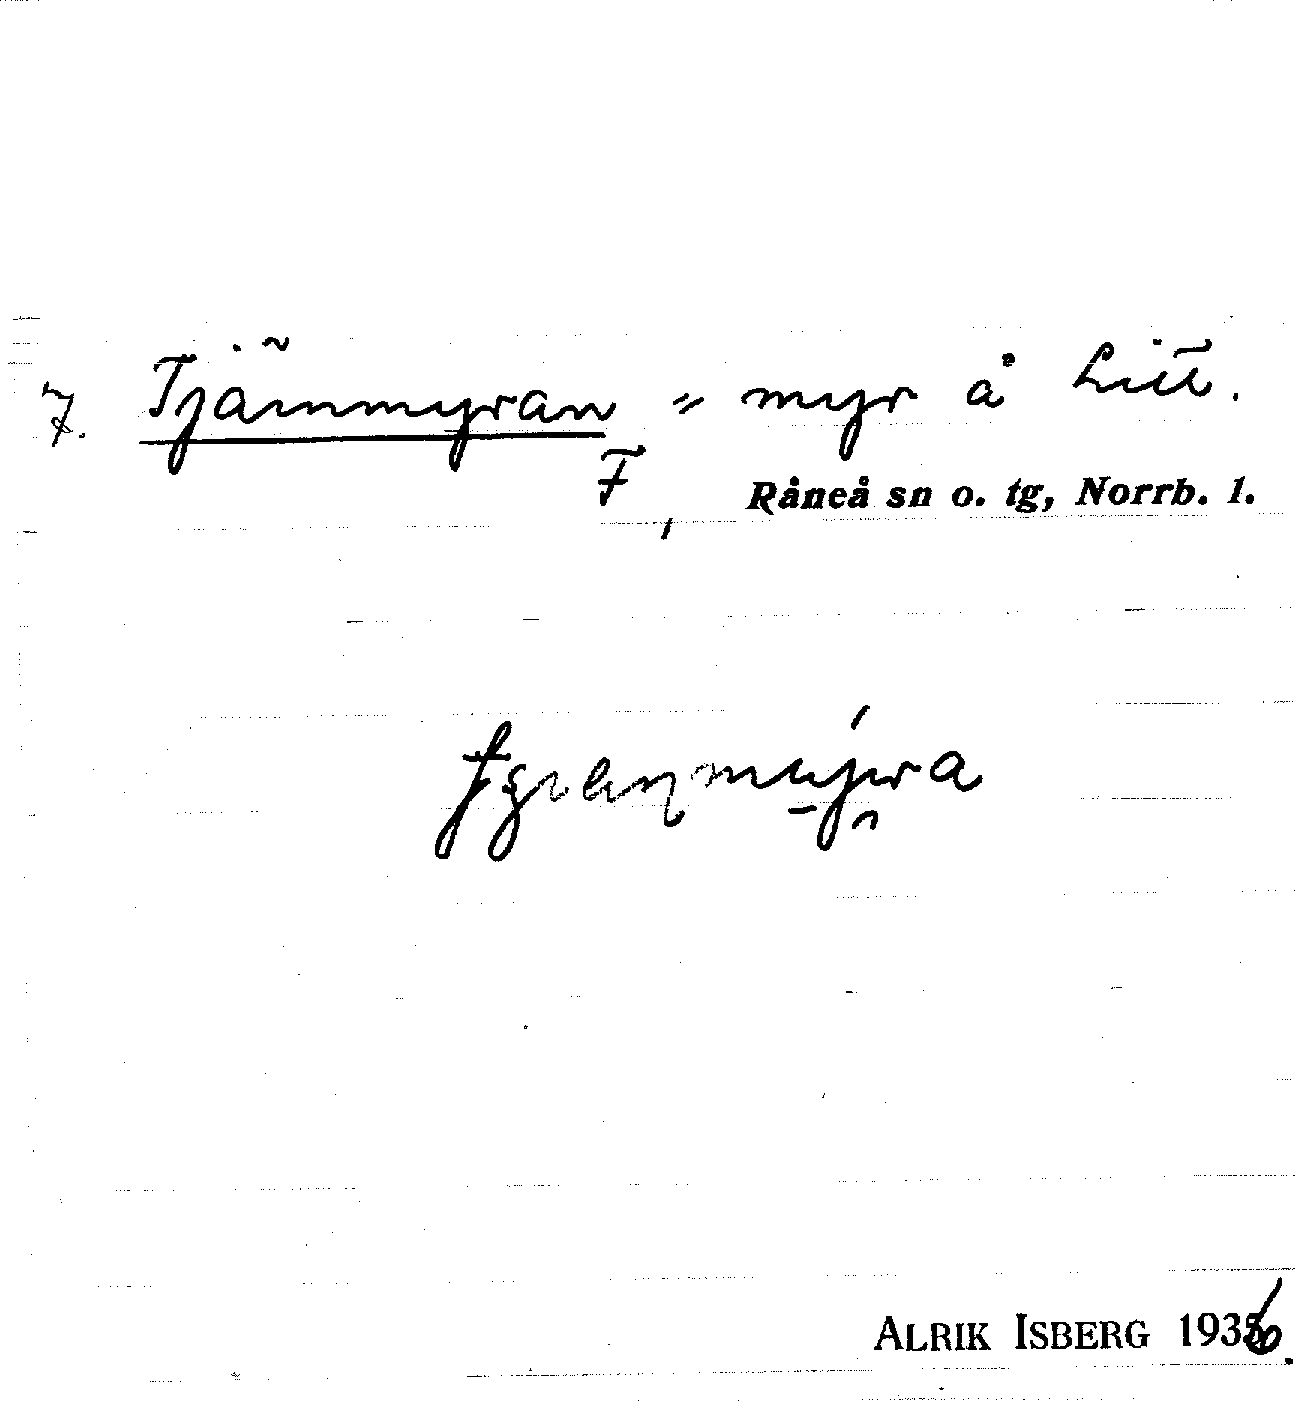 7. Tjärnmyran = myr å Litt.
F
Råneå sn o. tg, Norrb. l.
ALRIK ISBERG 1936.